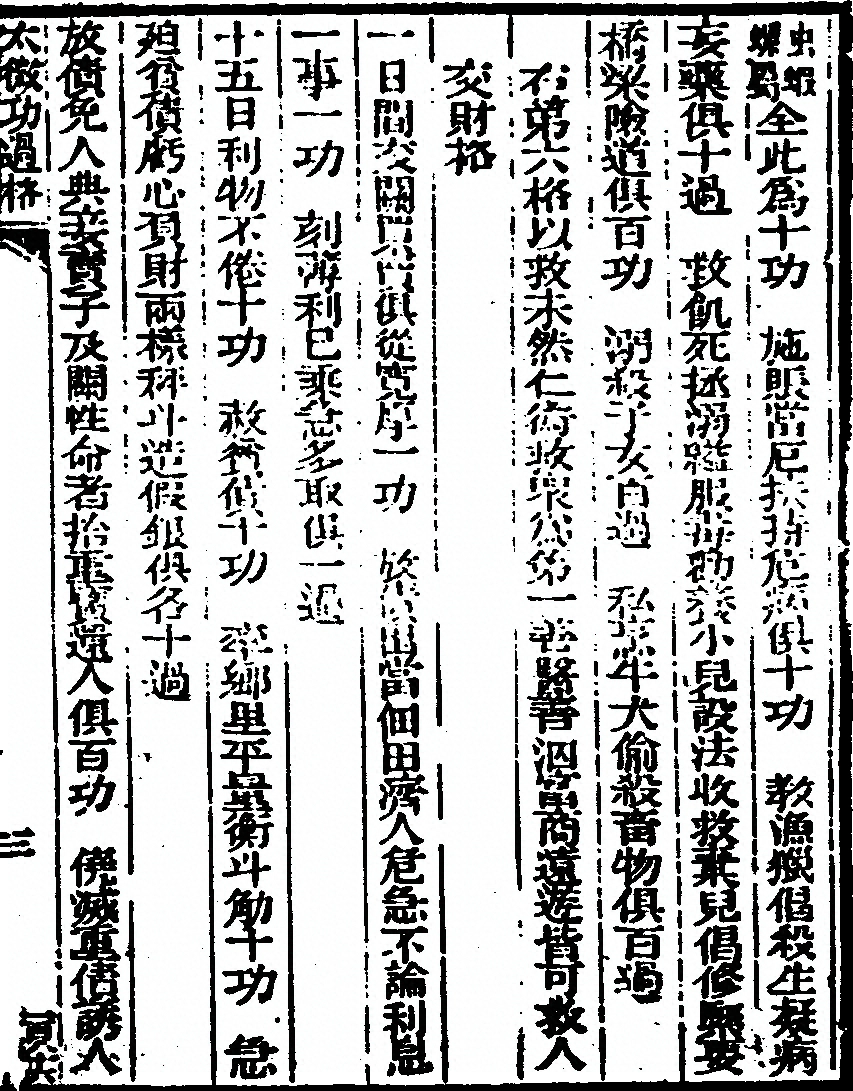 虫蝦
螺𧎚全此為十功　施賑當厄扶持危病俱十功　教漁獵倡殺生擬病
妄藥俱十過　救飢死拯溺縊服毒勸養小兒設法收救棄兒倡修緊要
橋梁險道俱百功　溺殺子女百過　私烹牛犬偷殺畜物俱百過
右第六格以救未然仁術救眾為第一善醫善泅富商遠遊皆可救人
交財格
一日間交關買賣俱從寬厚一功　出當佃田濟人危急不論利息
一事一功　刻薄利己乘急多取俱一過
十五日利物不倦十功　救貧償十功　率鄉里平量衡斗斛十功　急
追貧債虧心負財兩樣秤斗造假銀俱各十過
放債免人典妻賣子及關性命者拾重寶還人俱百功　僥減重債誘人
太微功過格
三